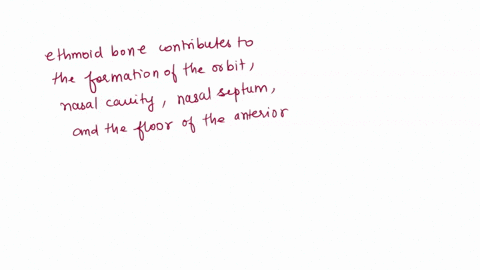 ethmoid bone contributes to
the formation of the orbit,
nasal cavity, nasal septum,
and the floor of the anterior